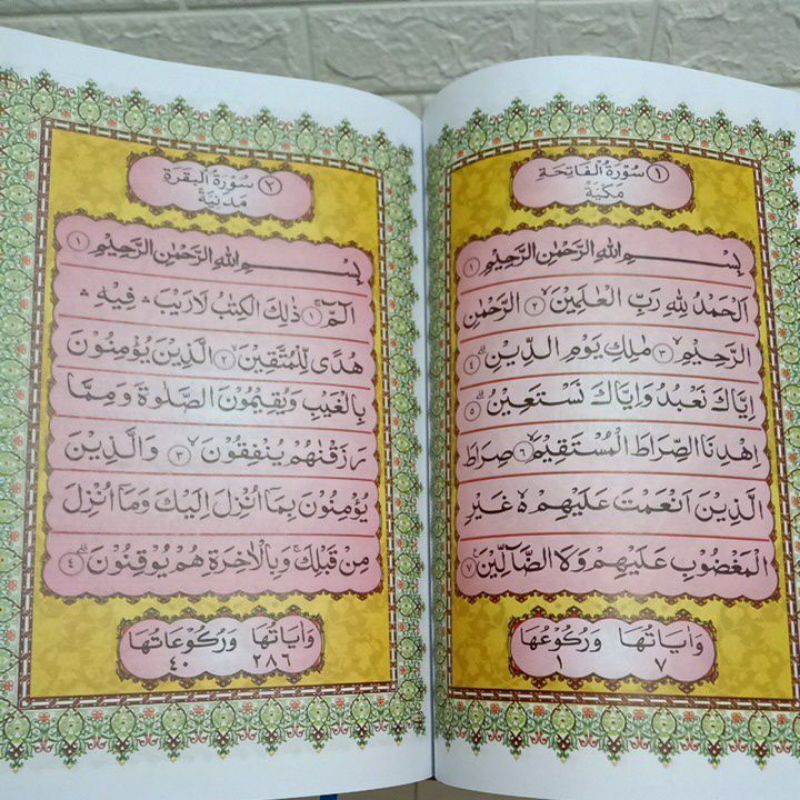 ١ سُوْرَةُ الْفَاتِحَةِ
مَكِّيَّةٌ
بِسْــــــــــمِ اللهِ الرَّحْمٰنِ الرَّحِيْمِ ١
اَلْحَمْدُ لِلّٰهِ رَبِّ الْعٰلَمِيْنَ ٢ الرَّحْمٰنِ
الرَّحِيْمِ ٣ مٰلِكِ يَوْمِ الدِّيْنِ ٤
اِيَّاكَ نَعْبُدُ وَاِيَّاكَ نَسْتَعِيْنُ ٥
اِهْدِنَا الصِّرَاطَ الْمُسْتَقِيْمَ ٦ صِرَاطَ
الَّذِيْنَ اَنْعَمْتَ عَلَيْهِمْ ەۙ غَيْرِ
الْمَغْضُوْبِ عَلَيْهِمْ وَلَا الضَّآلِّيْنَ ٧
وَاٰيَاتُهَا وَرُكُوْعُهَا
٧ ١
٢ سُوْرَةُ الْبَقَرَةِ
مَدَنِيَّةٌ
بِسْــــــــــمِ اللهِ الرَّحْمٰنِ الرَّحِيْمِ ١
الۤمّۤ ١ ذٰلِكَ الْكِتٰبُ لَا رَيْبَ ۛ فِيْهِ ۛ
هُدًى لِّلْمُتَّقِيْنَ ٢ الَّذِيْنَ يُؤْمِنُوْنَ
بِالْغَيْبِ وَيُقِيْمُوْنَ الصَّلٰوةَ وَمِمَّا
رَزَقْنٰهُمْ يُنْفِقُوْنَ ٣ وَالَّذِيْنَ
يُؤْمِنُوْنَ بِمَآ اُنْزِلَ اِلَيْكَ وَمَآ اُنْزِلَ
مِنْ قَبْلِكَ ۚ وَبِالْاٰخِرَةِ هُمْ يُوْقِنُوْنَ ٤
وَاٰيَاتُهَا وَرُكُوْعَاتُهَا
٢٨٦ ٤٠